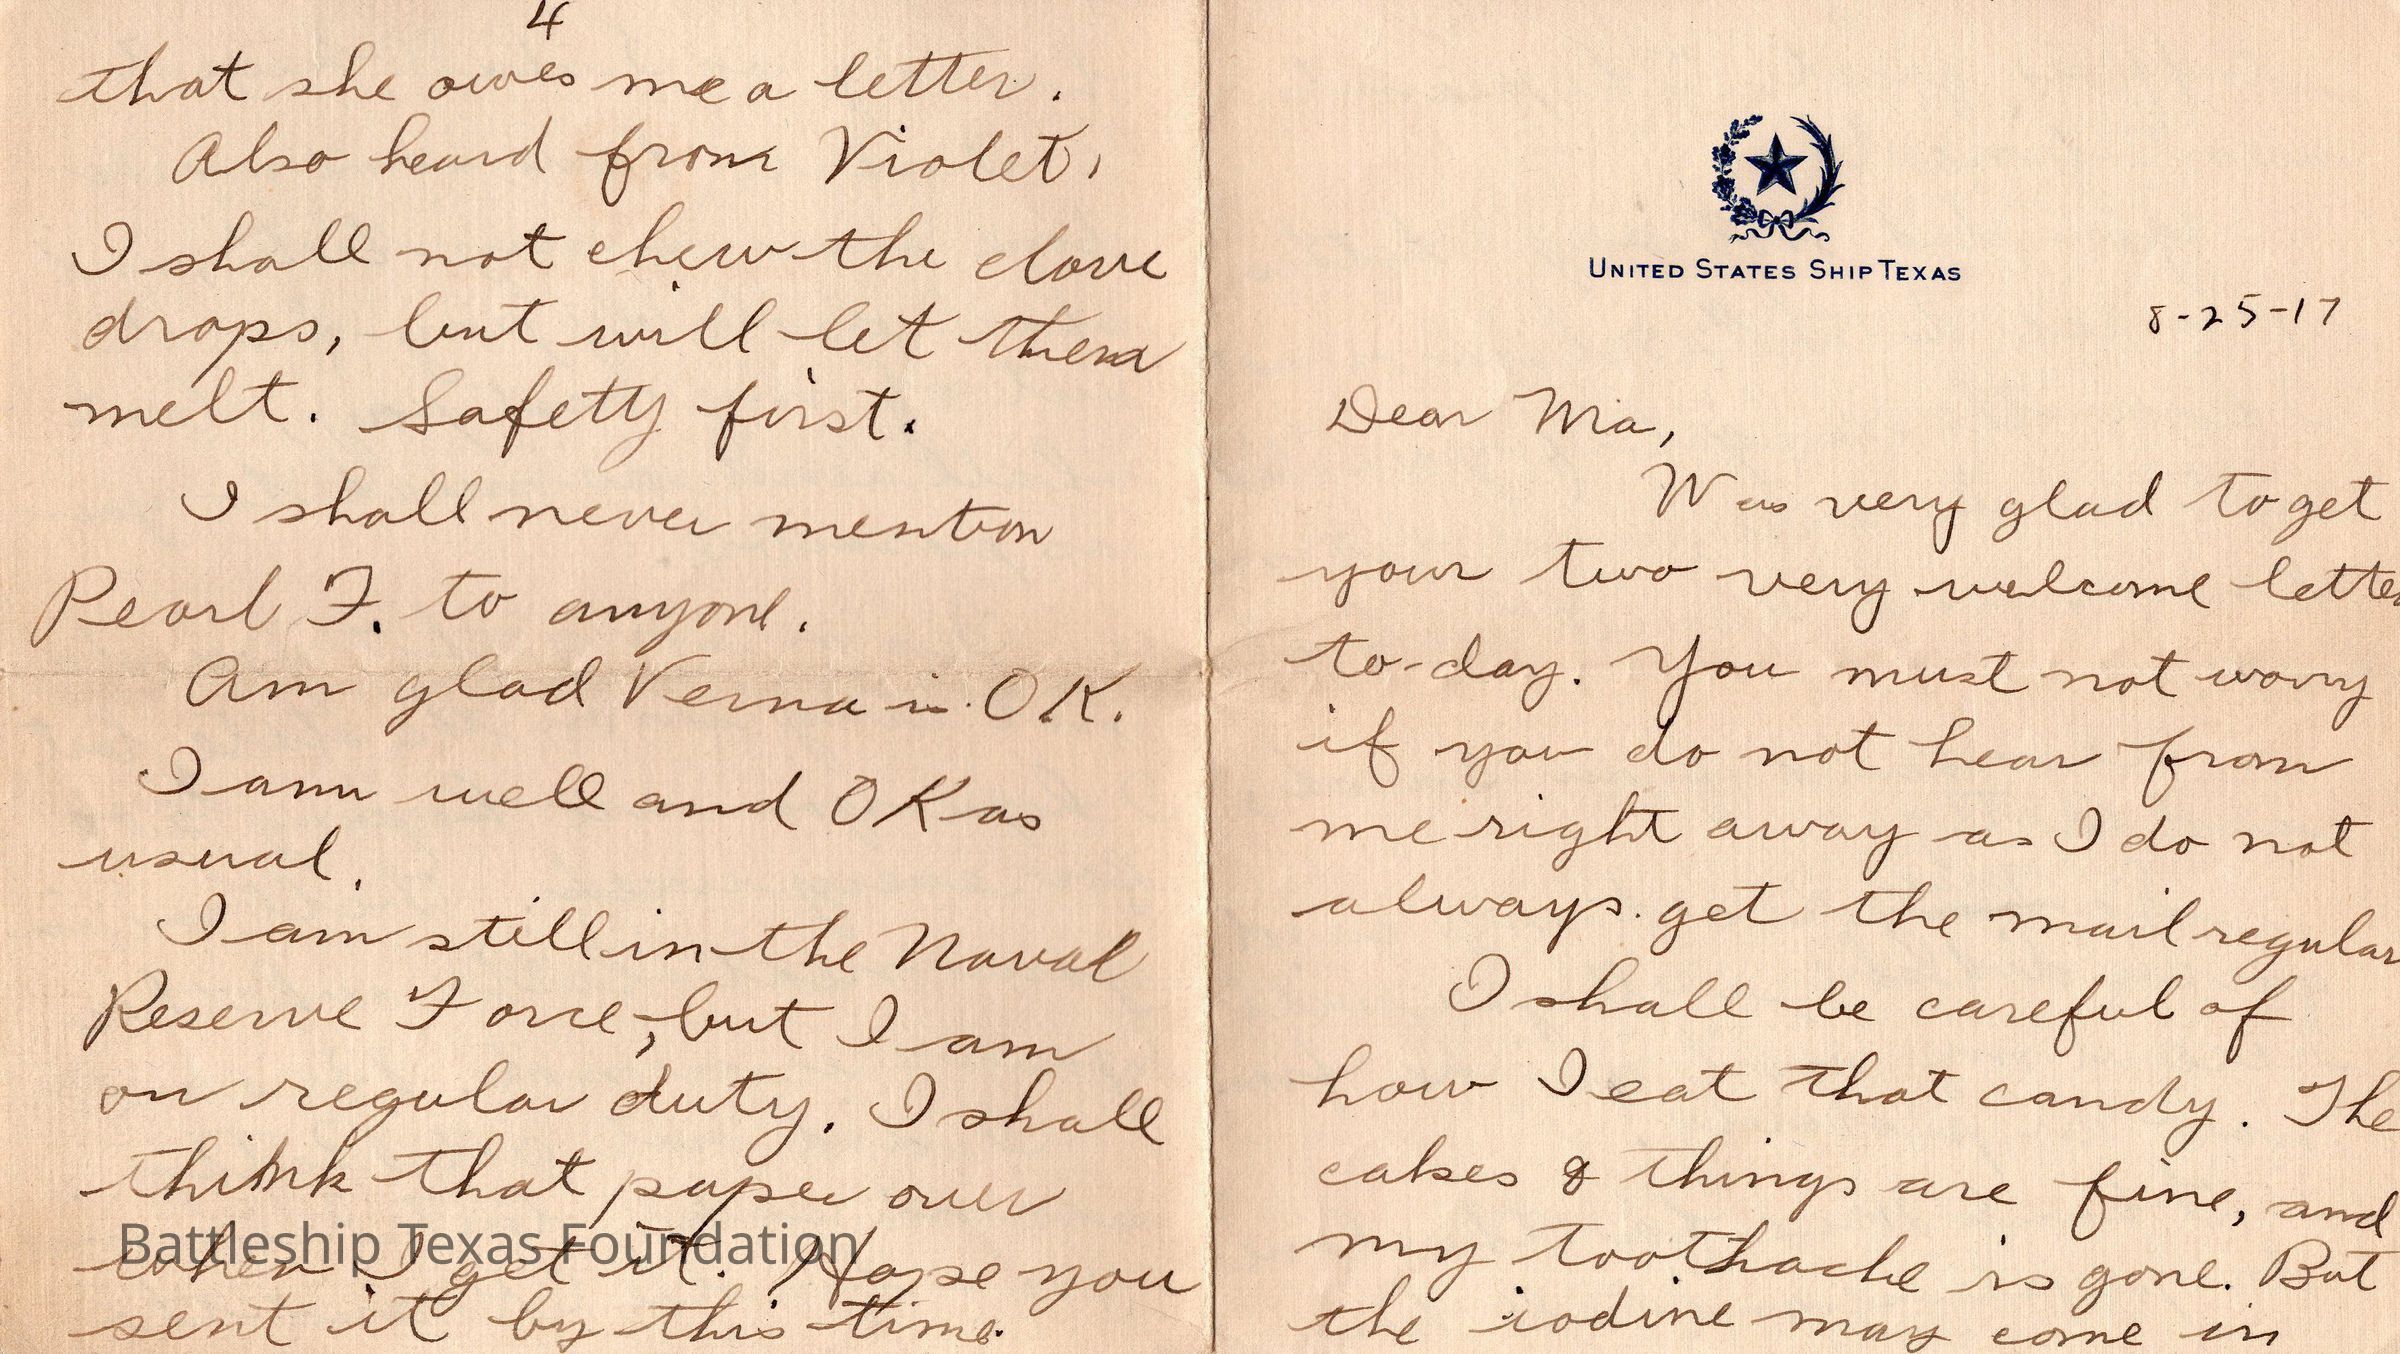 4
that she owes me a letter.
Also heard from Violet.
I shall not chew the clove
drops, but will let them
melt. Safety first.
I shall never mention
Pearl F. to anyone.
Am glad Verna is OK.
I am well and OK as
usual.
I am still in the Naval
Reserve Force, but I am
on regular duty. I shall
think that paper over
when I get it. Hope you
sent it by this time.
Battleship Texas Foundation
UNITED STATES SHIP TEXAS
8-25-17
Dear Ma,
Was very glad to get
your two very welcome letter
to-day. You must not worry
if you do not hear from
me right away as I do not
always get the mail regular
I shall be careful of
how I eat that candy. The
cakes & things are fine, and
my toothache is gone. But
the iodine may come in